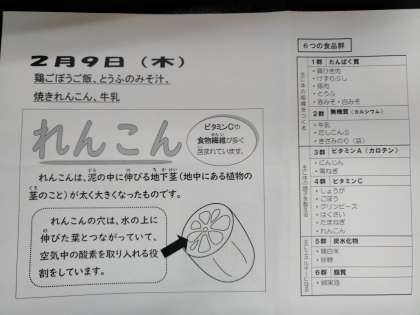 2月9日（木）
鶏ごぼうご飯、とうふのみそ汁、
焼きれんこん、牛乳
れんこん
ビタミンCや
食物繊維が多く
含まれています。
れんこんは、泥の中に伸びる地下茎（地中にある植物の
茎のこと）が太く大きくなったものです。
れんこんの穴は、水の上に
伸びた葉とつながっていて、
空気中の酸素を取り入れる役
割をしています。
6つの食品群
1群 たんぱく質
・鶏ひき肉
・豚肉
・とうふ
・赤みそ・白みそ
2群 無機質（カルシウム）
・牛乳
・だしこんぶ
・きざみのり（袋）
3群 ビタミンA（カロテン）
・にんじん
・葉ねぎ
4群 ビタミンC
・しょうが
・ごぼう
・グリンピース
・はくさい
・たまねぎ
・れんこん
5群 炭水化物
・精白米
・砂糖
6群 脂質
・綿実油